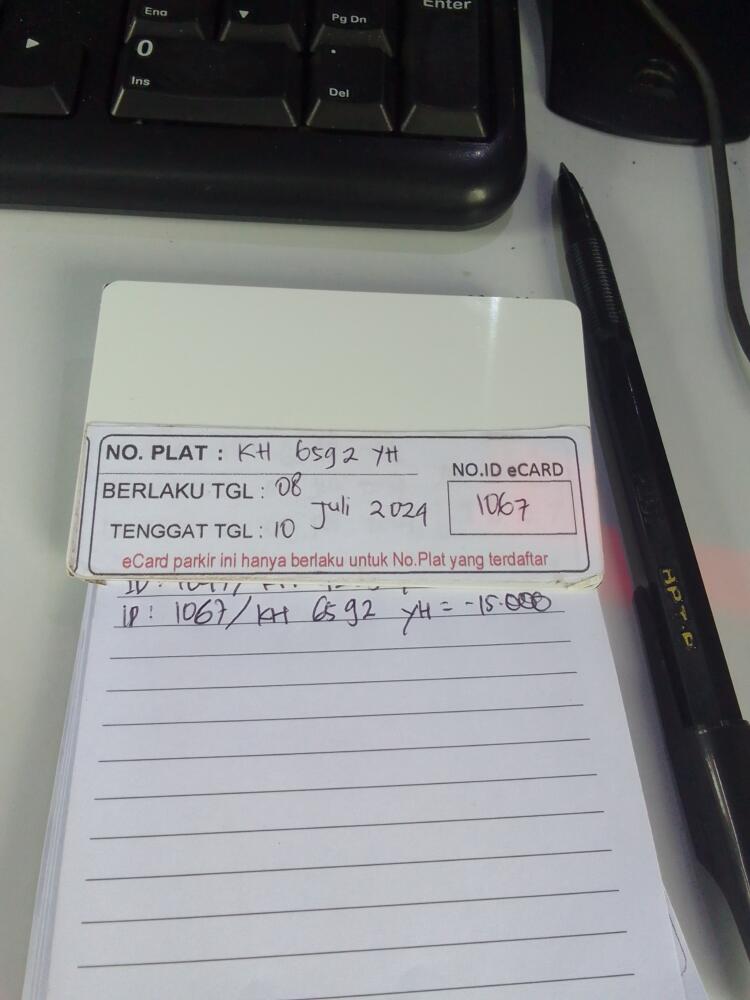 Enter
End
Pg Dn
0
.
Ins
Del
NO. PLAT : KH 6592 YH
NO.ID eCARD
BERLAKU TGL : 08
1067
Juli 2024
TENGGAT TGL : 10
eCard parkir ini hanya berlaku untuk No.Plat yang terdaftar
ID : 1067/ KH 6592 YH = -15.000